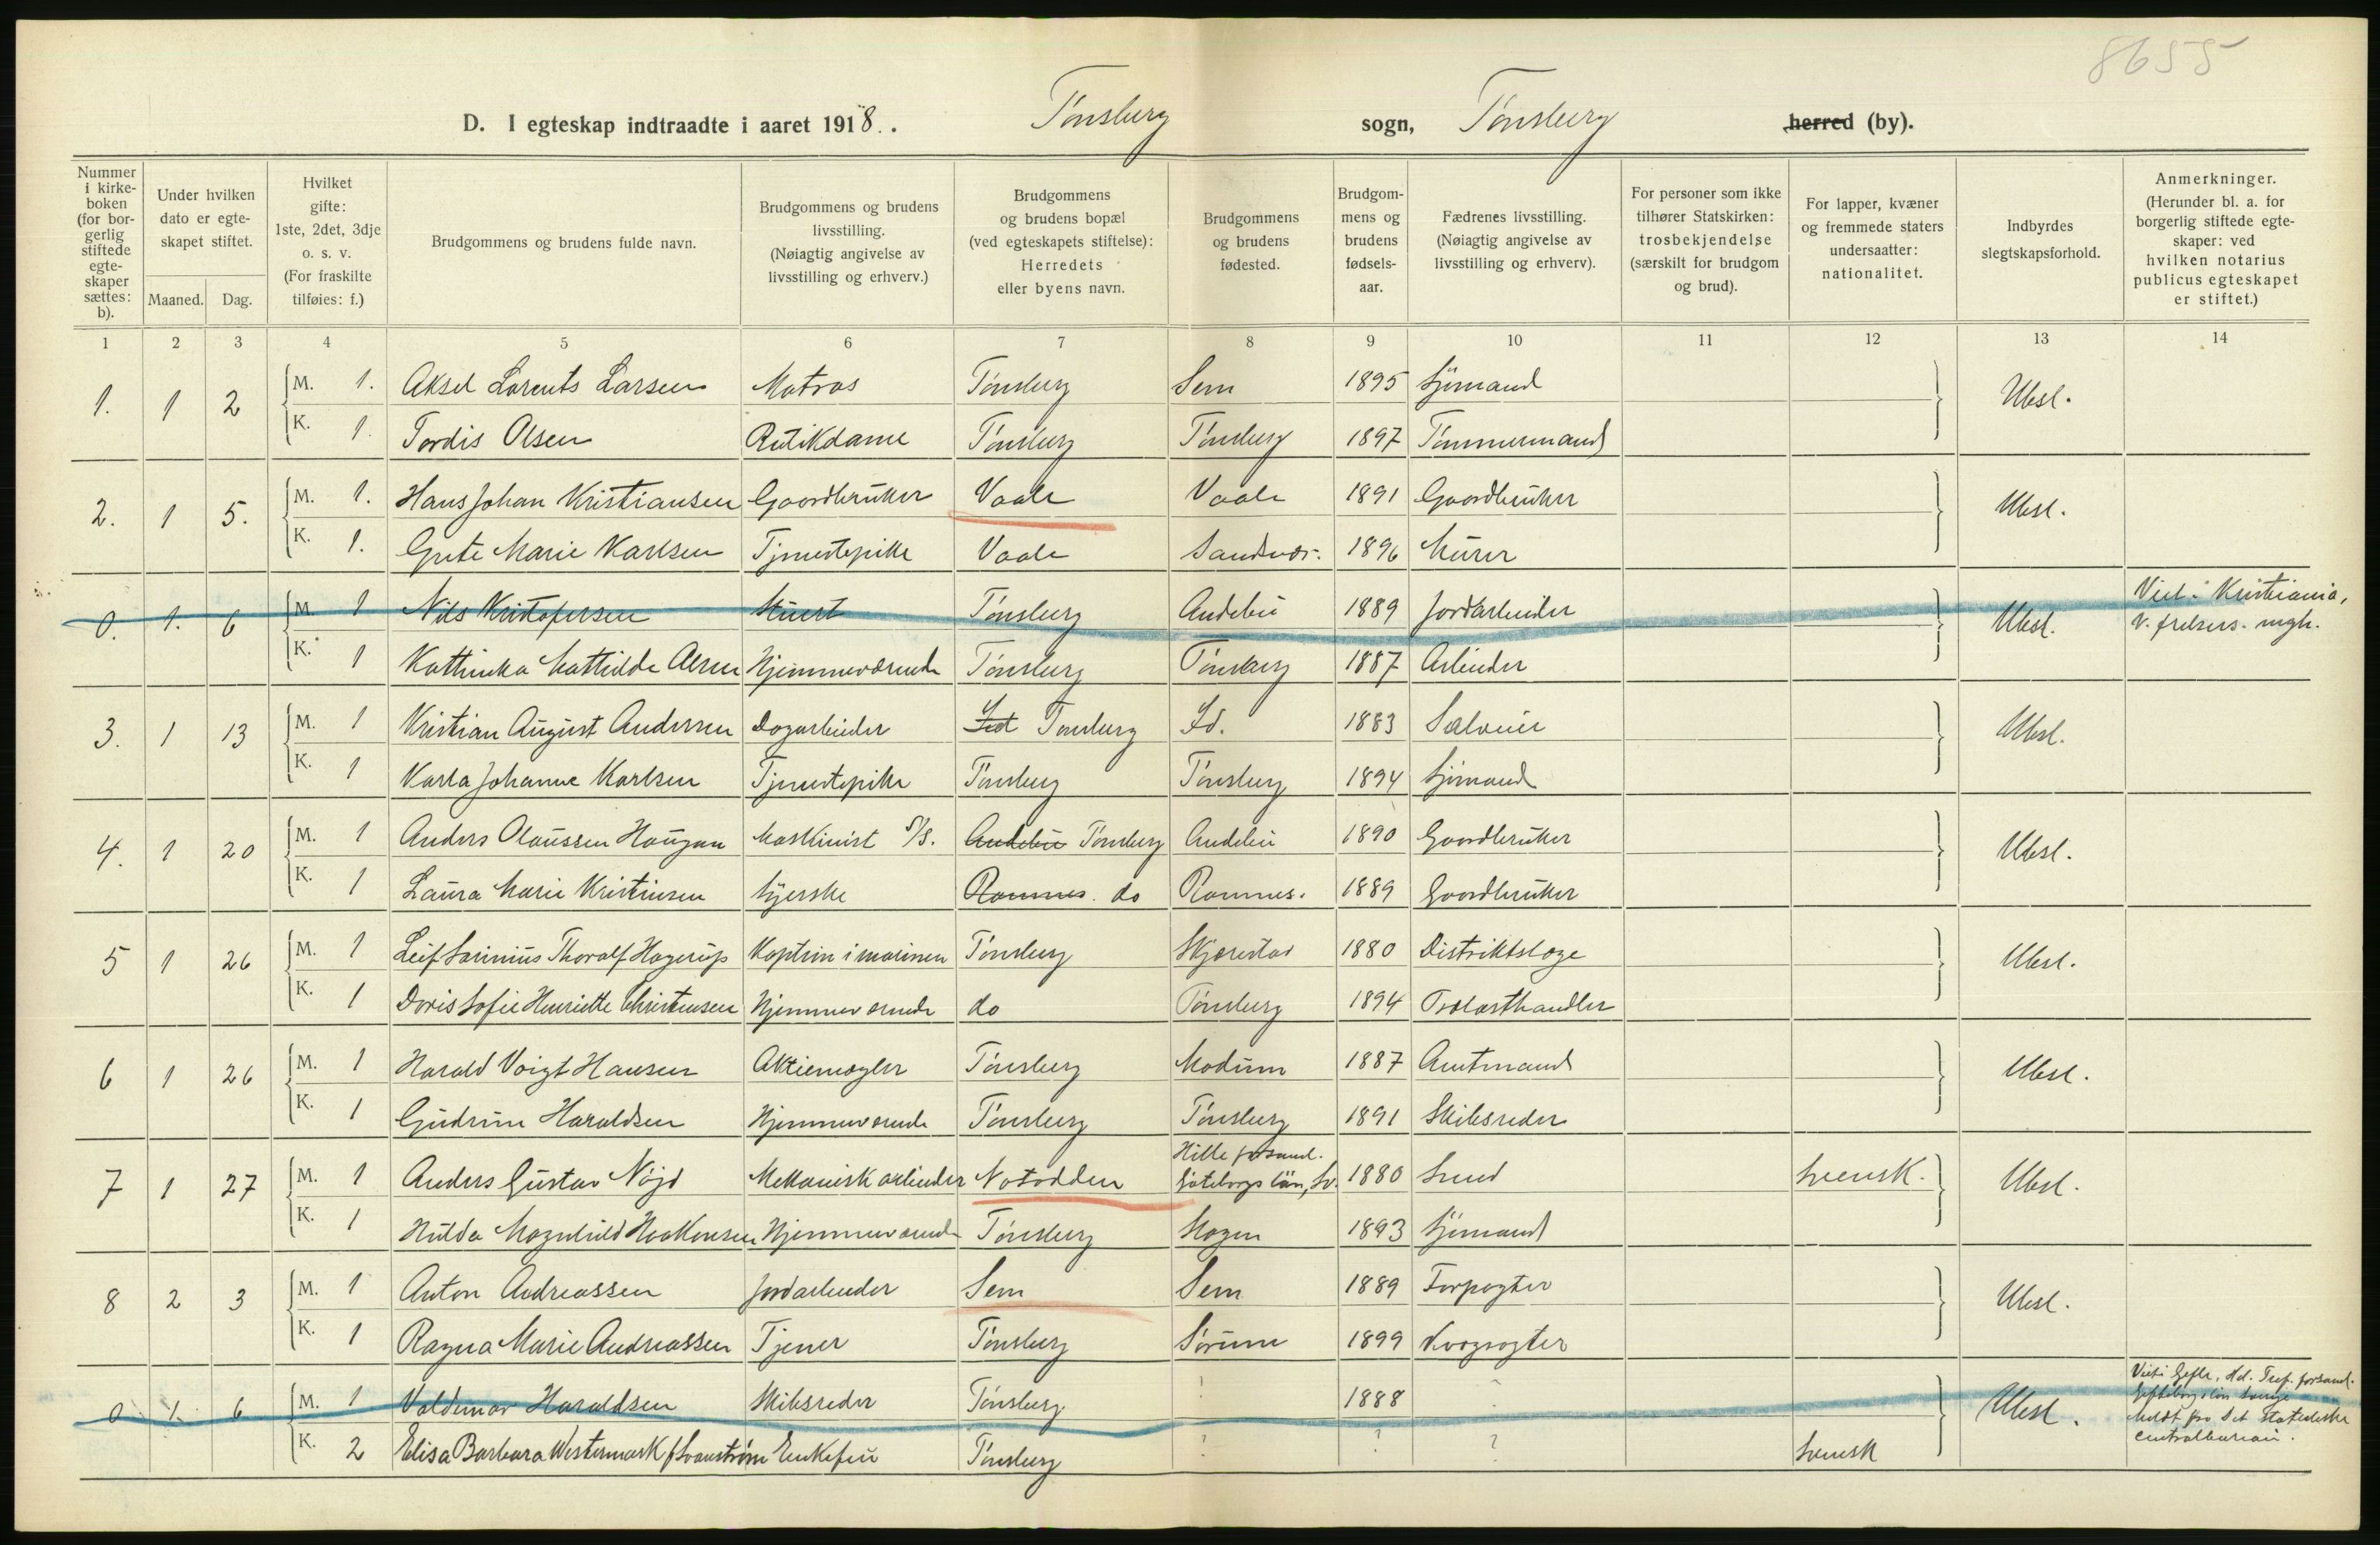 8655
D. I egteskap indtraadte i aaret 1918. Tønsberg sogn, Tønsberg herred (by).
Nummer i kirkeboken (for borgerlig stiftede egteskaper sættes: b).
Under hvilken dato er egteskapet stiftet.
Maaned. Dag.
Hvilket gifte: 1ste, 2det, 3dje o. s. v. (For fraskilte tilføies: f.)
Brudgommens og brudens fulde navn.
Brudgommens og brudens livsstilling. (Nøiagtig angivelse av livsstilling og erhverv.)
Brudgommens og brudens bopæl (ved egteskapets stiftelse): Herredets eller byens navn.
Brudgommens og brudens fødested.
Brudgommens og brudens fødselsaar.
Fædrenes livsstilling. (Nøiagtig angivelse av livsstilling og erhverv).
For personer som ikke tilhører Statskirken: trosbekjendelse (særskilt for brudgom og brud).
For lapper, kvæner og fremmede staters undersaatter: nationalitet.
Indbyrdes slegtskapsforhold.
Anmerkninger. (Herunder bl. a. for borgerlig stiftede egteskaper: ved hvilken notarius publicus egteskapet er stiftet.)
1 2 3 4 5 6 7 8 9 10 11 12 13 14
1. 1 2 M. 1. Aksel Lorents Larsen Matros Tønsberg Sem 1895 Sjømand Ubsl.
K. 1. Tordis Olsen Butikdame Tønsberg Tønsberg 1897 Tømmermand
2. 1 5. M. 1. Hans Johan Kristiansen Gaardbruker Vaale Vaale 1891 Gaardbruker Ubsl.
K. 1. Grete Marie Karlsen Tjenestepike Vaale Sandsvær. 1896 Murer
0. 1. 6 M. 1 Nils Kristofersen Stuert Tønsberg Andebu 1889 Jordarbeider Ubsl. Viet i Kristiania, v. frelsers. mgh.
K. 1 Kathinka Mathilde Olsen Hjemmeværende Tønsberg Tønsberg 1887 Arbeider
3. 1 13 M. 1 Kristian August Andersen Dagarbeider Tønsberg Id. 1883 Ubsl.
K. 1 Karla Johanne Karlsen Tjenestepike Tønsberg Tønsberg 1894 Sjømand
4. 1 20 M. 1 Anders Olaussen Haugan Maskinist D/S. Andebu Tønsberg Andebu 1890 Gaardbruker Ubsl.
K. 1 Laura Marie Kristiansen Syerske Ramnes. do Ramnes. 1889 Gaardbruker
5 1 26 M. 1 Leif Sarinius Thoralf Hagerup Kaptein i marinen Tønsberg Skjærstad 1880 Distriktslæge Ubsl.
K. 1 Doris Sofie Henriette Christensen Hjemmeværende do Tønsberg 1894 Trælasthandler
6 1 26 M. 1 Harald Voigt Hansen Aktiemægler Tønsberg Modum 1887 Amtmand Ubsl.
K. 1 Gudrun Haraldsen Hjemmeværende Tønsberg Tønsberg 1891 Skibsreder
7 1 27 M. 1 Anders Gustav Nöjd Mekanisk arbeider Notodden Hille forsaml. län, Sv. 1880 Smed Svensk. Ubsl.
K. 1 Hulda Magnhild Haakensen Hjemmeværende Tønsberg Skogn 1893 Sjømand
8 2 3 M. 1 Anton Andreassen Jordarbeider Sem Sem 1889 Forpagter Ubsl.
K. 1 Ragna Marie Andreassen Tjener Tønsberg Sørum 1899
0 1. 6 M. 1 Valdemar Haraldsen Skibsreder Tønsberg ! 1888 Ubsl. Viet i Gefle, forsaml. Sverige Meldt fra Det statistiske centralbureau.
K. 2 Elisa Barbara Westermark f. Svanstrøm Enkefru Tønsberg ? ? ? Svensk